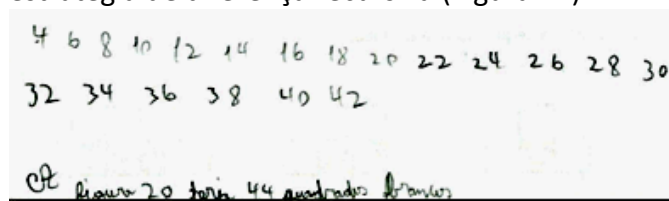 4 6 8 10 12 14 16 18 20 22 24 26 28 30
32 34 36 38 40 42
A figura 20 teria 44 quadrados brancos